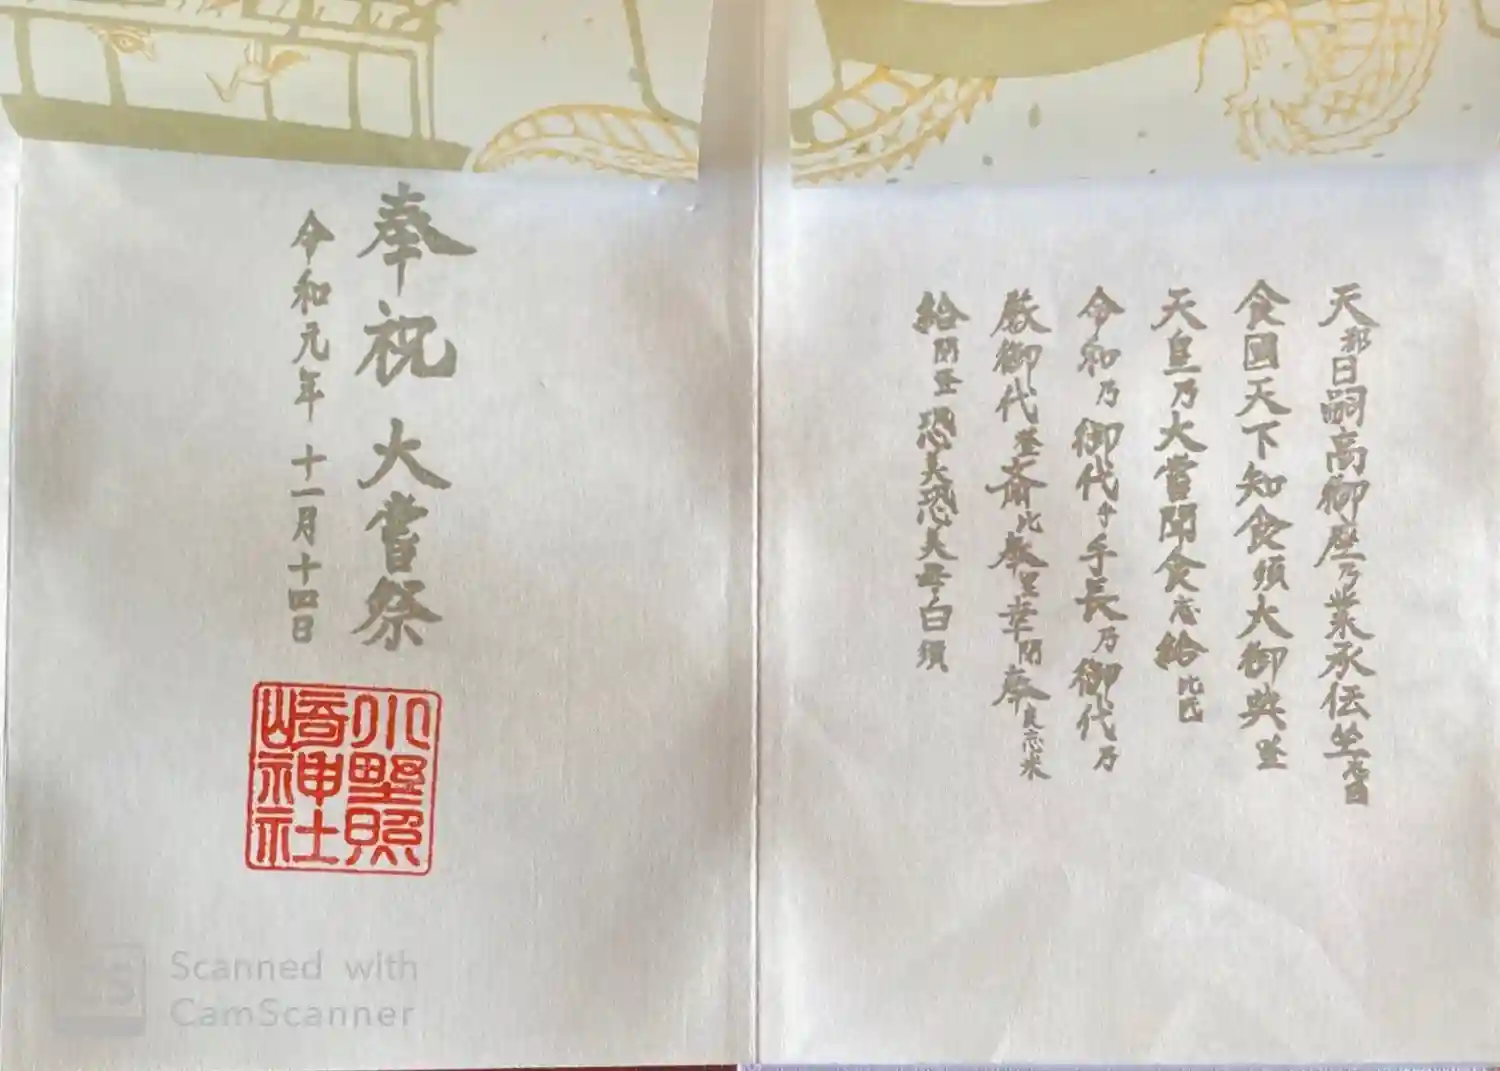 天都日嗣高御座乃業承伝坐須
食國天下知食須大御典登
天皇乃大嘗聞食志給比氐
令和乃御代乎手長乃御代乃
厳御代登斎比奉里幸閇奉良志米
給閇登恐美恐美母白須
奉祝 大嘗祭
令和元年 十一月十四日
小野照
崎神社
Scanned with
CamScanner